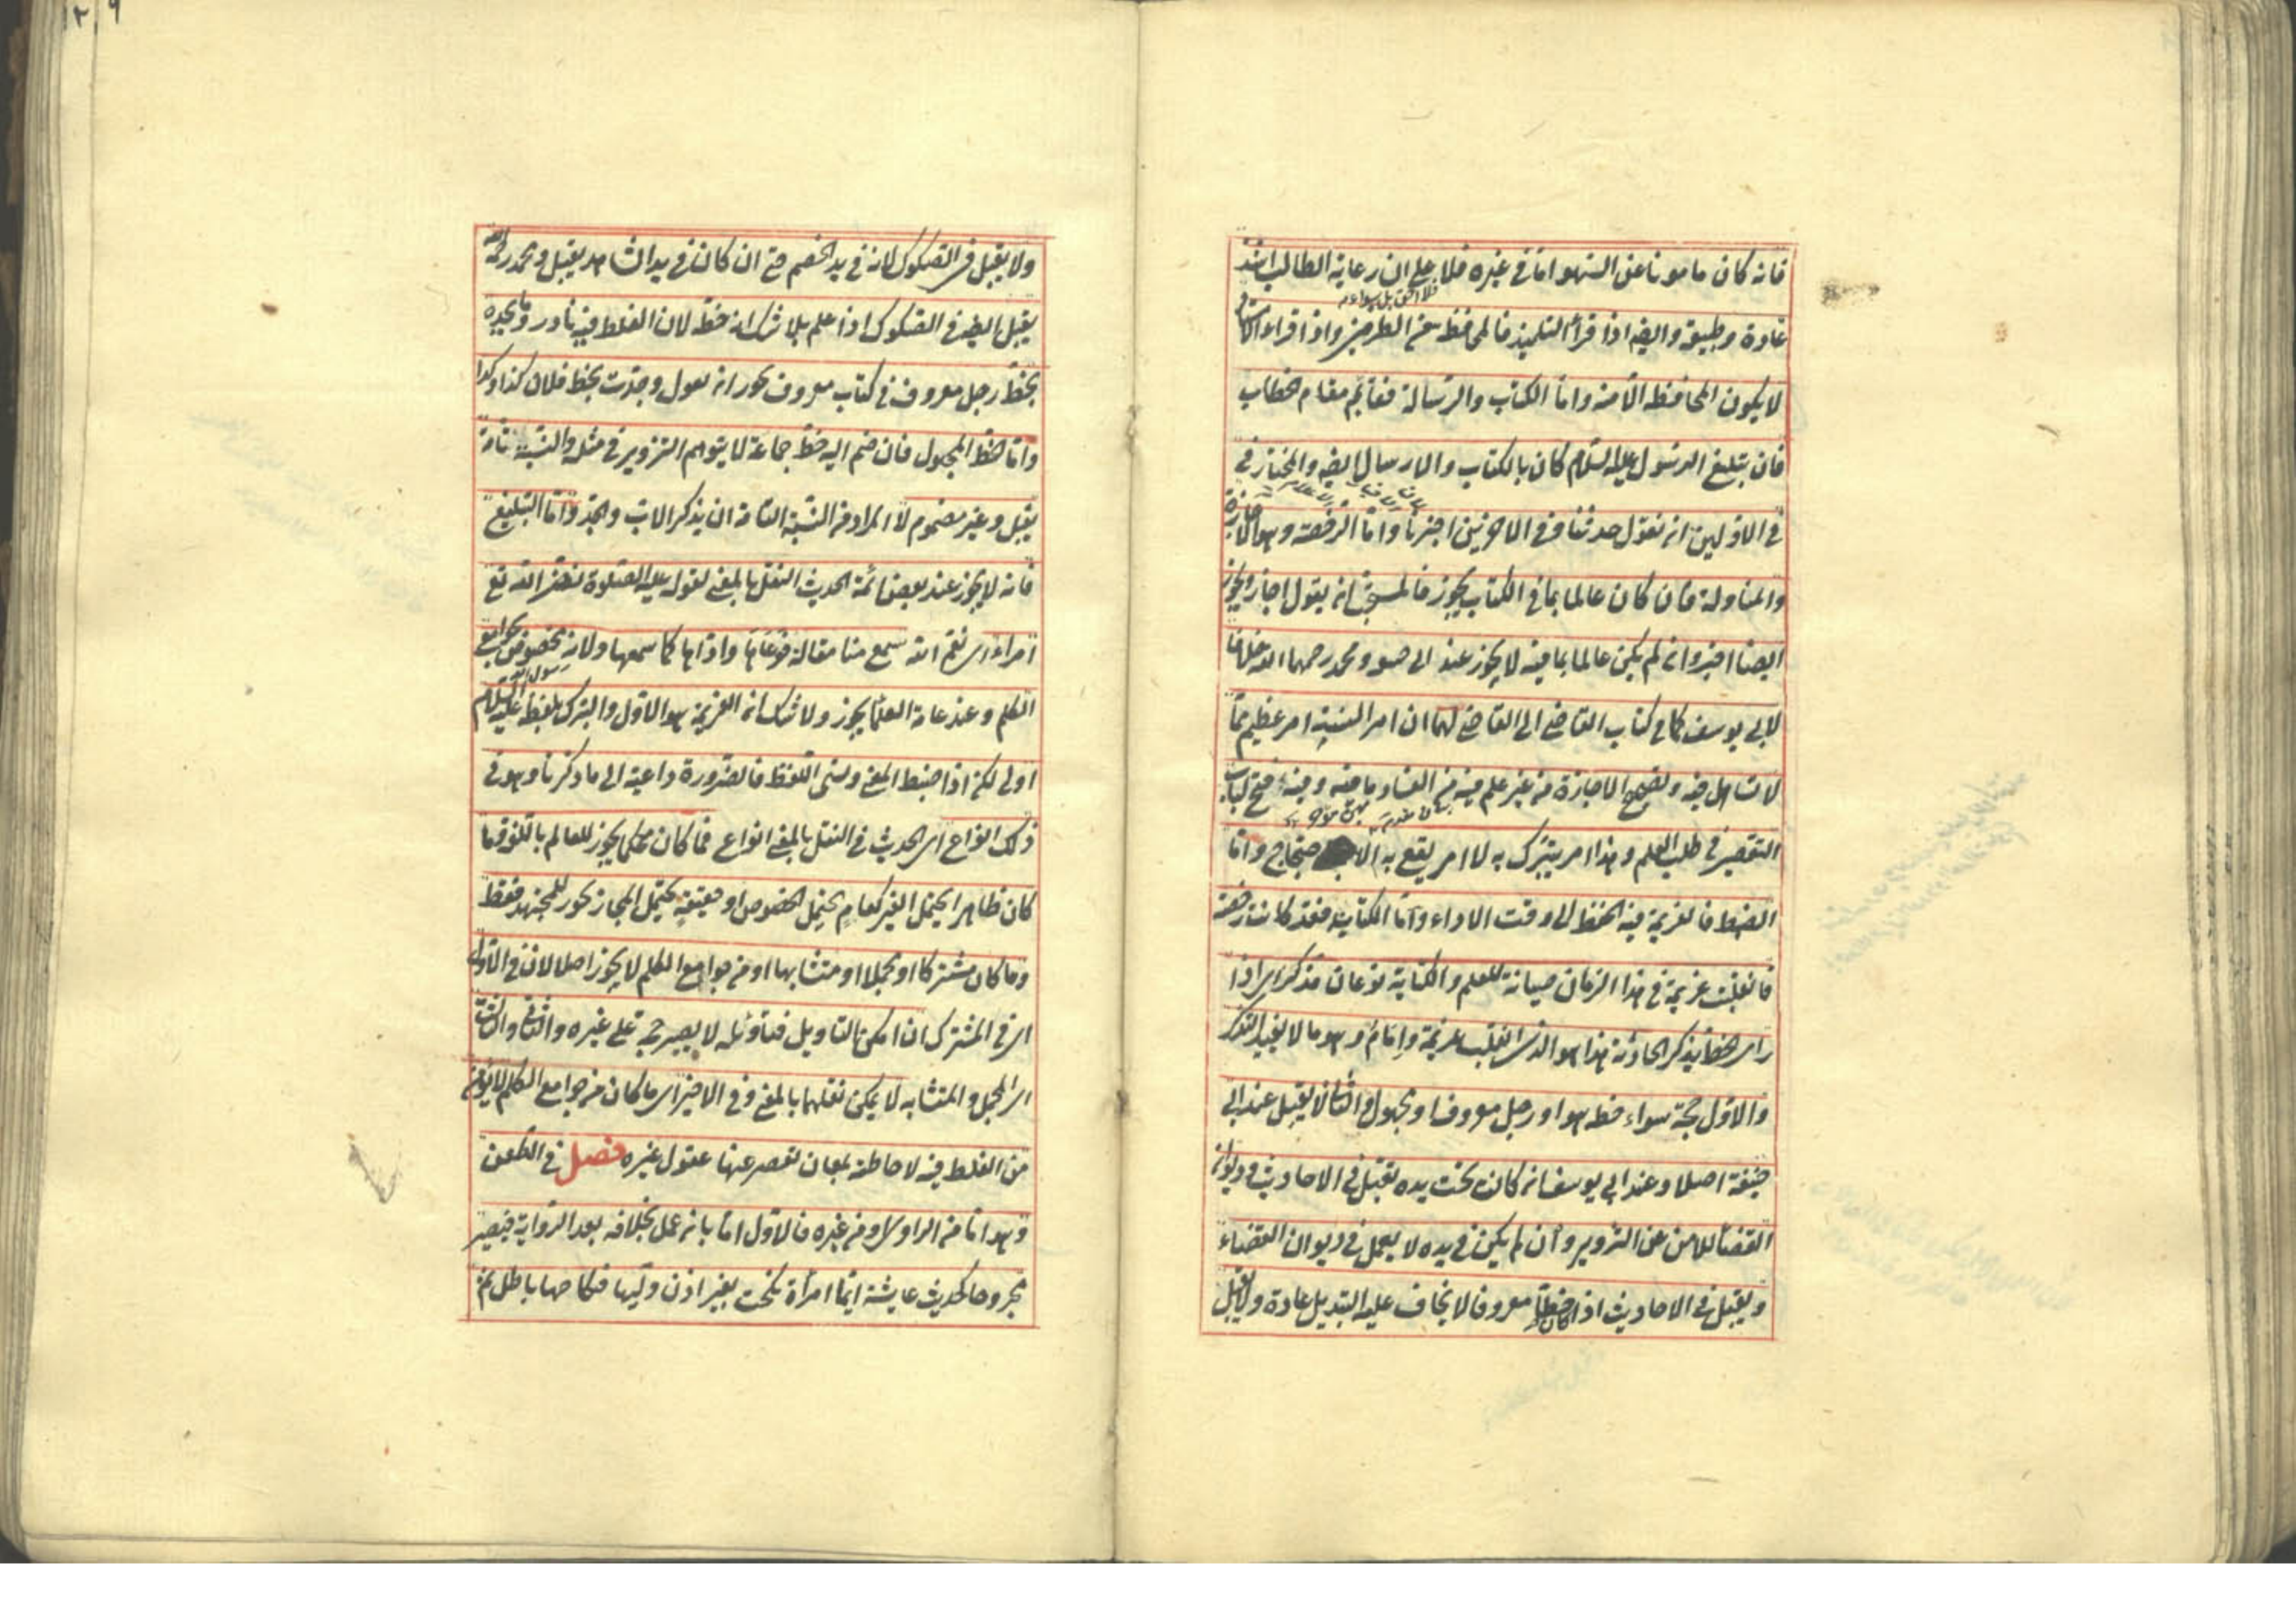 فانه كان مامونا عن السهو اما في غيره فلا على ان رعاية الطالب اشد
عادة وطبيعة وايضا اذا قرأ التلميذ فالمحافظة من الطرفين واذا قراء الاستاذ
لا يكون المحافظة الا منه واما الكتاب والرسالة فقائم مقام الخطاب
فان تبليغ الرسول عليه السلام كان بالكتاب والارسال ايضا والمختار في
في الاولين ان يقول حدثنا وفي الاخيرين اخبرنا واما الرخصة وهو الاجازة
والمناولة فان كان عالما بما في الكتاب يجوز فالمستحب ان يقول اجاز ويجوز
ايضا اخبر وان لم يكن عالما بما فيه لا يجوز عند ابى حنيفة ومحمد رحمهما الله خلافا
لابي يوسف كما في كتاب القاضي الى القاضي لهما ان امر السنة امر عظيم مما
لا تساهل فيه وتصحيح الاجازة من غير علم فيه من الفساد ما فيه وفيه فتح لباب
التقصير في طلب العلم وهذا امر يتبرك به لا امر يقع به الاحتجاج واما
الضبط فالعزيمة فيه الحفظ الى وقت الاداء واما الكتابة فقد كانت رخصة
فانقلبت عزيمة في هذا الزمان صيانة للعلم والكتابة نوعان مذكر اى اذا
راى الخط يذكر الحادثة هذا هو الذى انقلب عزيمة وامام وهو ما لا يفيد التذكر
والاول حجة سواء خطه هو او رجل معروف او مجهول والثانى لا يقبل عند ابى
حنيفة اصلا وعند ابي يوسف ان كان تحت يده يقبل في الاحاديث وديوان
القضاء للامن عن التزوير وان لم يكن في يده لا يعمل في ديوان القضاء
ويقبل في الاحاديث اذا كان خطا معروفا لا يخاف عليه التبديل عادة ولا يقبل
ولا يقبل في الصكوك لانه في يد الخصم حتى ان كان في يد الشاهد يقبل ومحمد رحمه الله
يقبل ايضا في الصكوك اذا علم بلا شك انه خطه لان الغلط فيه نادر وما يجده
بخط رجل معروف في كتاب معروف يجوز ان يقول وجدت بخط فلان كذا وكذا
واما الخط المجهول فان ضم اليه خط جماعة لا يتوهم التزوير في مثله والنسبة تامة
يقبل وغير مضموم لا المراد من النسبة التامة ان يذكر الاب والجد واما التبليغ
فانه لا يجوز عند بعض ائمة الحديث النقل بالمعنى لقوله عليه الصلوة نضر الله تع
امراء اى نعم الله سمع منا مقالة فوعاها واداها كما سمعها ولانه مخصوص بجوامع
الكلم وعند عامة العلما يجوز ولا شك ان العزيمة هو الاول والتبرك بلفظه عليه السلام
اولى لكن اذا ضبط المعنى ونسى اللفظ فالضرورة داعية الى ما ذكرنا وهو في
ذلك انواع اى الحديث في النقل بالمعنى انواع فما كان محكما يجوز للعالم باللغة وما
كان ظاهرا يحتمل الغير كعام يحتمل الخصوص او حقيقة يحتمل المجاز يجوز للمجتهد فقط
وما كان مشتركا او مجملا او متشابها او من جوامع الكلم لا يجوز اصلا لان في الاول
اى في المشترك ان امكن التاويل فتاويله لا يصير حجة على غيره والثانى والثالث
اى المجمل والمتشابه لا يمكن نقلهما بالمعنى وفي الاخير اى ما كان من جوامع الكلم لا يؤمن
من الغلط فيه لاحاطة بمعان تقصر عنها عقول غيره فصل في الطعن
وهو اما من الراوى او من غيره فالاول اما بان عمل بخلافه بعد الرواية فيصير
مجروحا كحديث عايشة ايما امرأة نكحت بغير اذن وليها فنكاحها باطل ثم